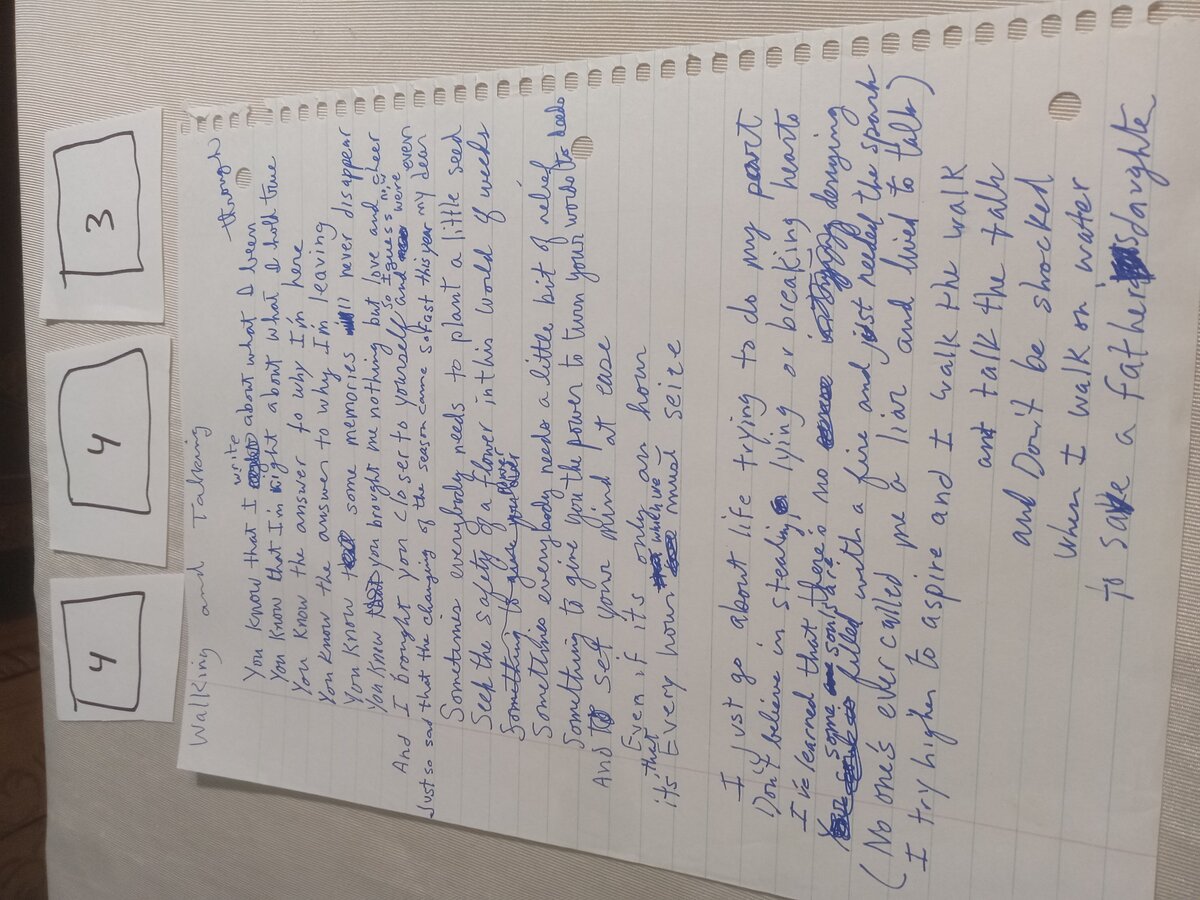 4 4 3
Walking and Talking
through
write
You know that I about what I been
You know that I'm right about what I hold true
You know the answer to why I'm here
You know the answer to why I'm leaving
You know some memories will never disappear
You knew you brought me nothing but love and cheer
so I guess now
And I brought you closer to yourself and were even
Just so sad that the changing of the season came so fast this year my dear
Sometimes everybody needs to plant a little seed
Seek the safety of a flower in this world of weeds
Something to give your power
Sometimes everybody needs a little bit of relief
Something to give you the power to turn your words to deeds
And set your mind at ease
Even if it's only an hour
that which we
it's Every hour must seize
I Just go about life trying to do my part
Don't believe in stealing lying or breaking hearts
I've learned that there's no denying
some souls are filled with a fire and just needed the spark
(No one's ever called me a liar and lived to talk)
I try higher to aspire and I walk the walk
and talk the talk
and Don't be shocked
when I walk on water
to save a father's daughter